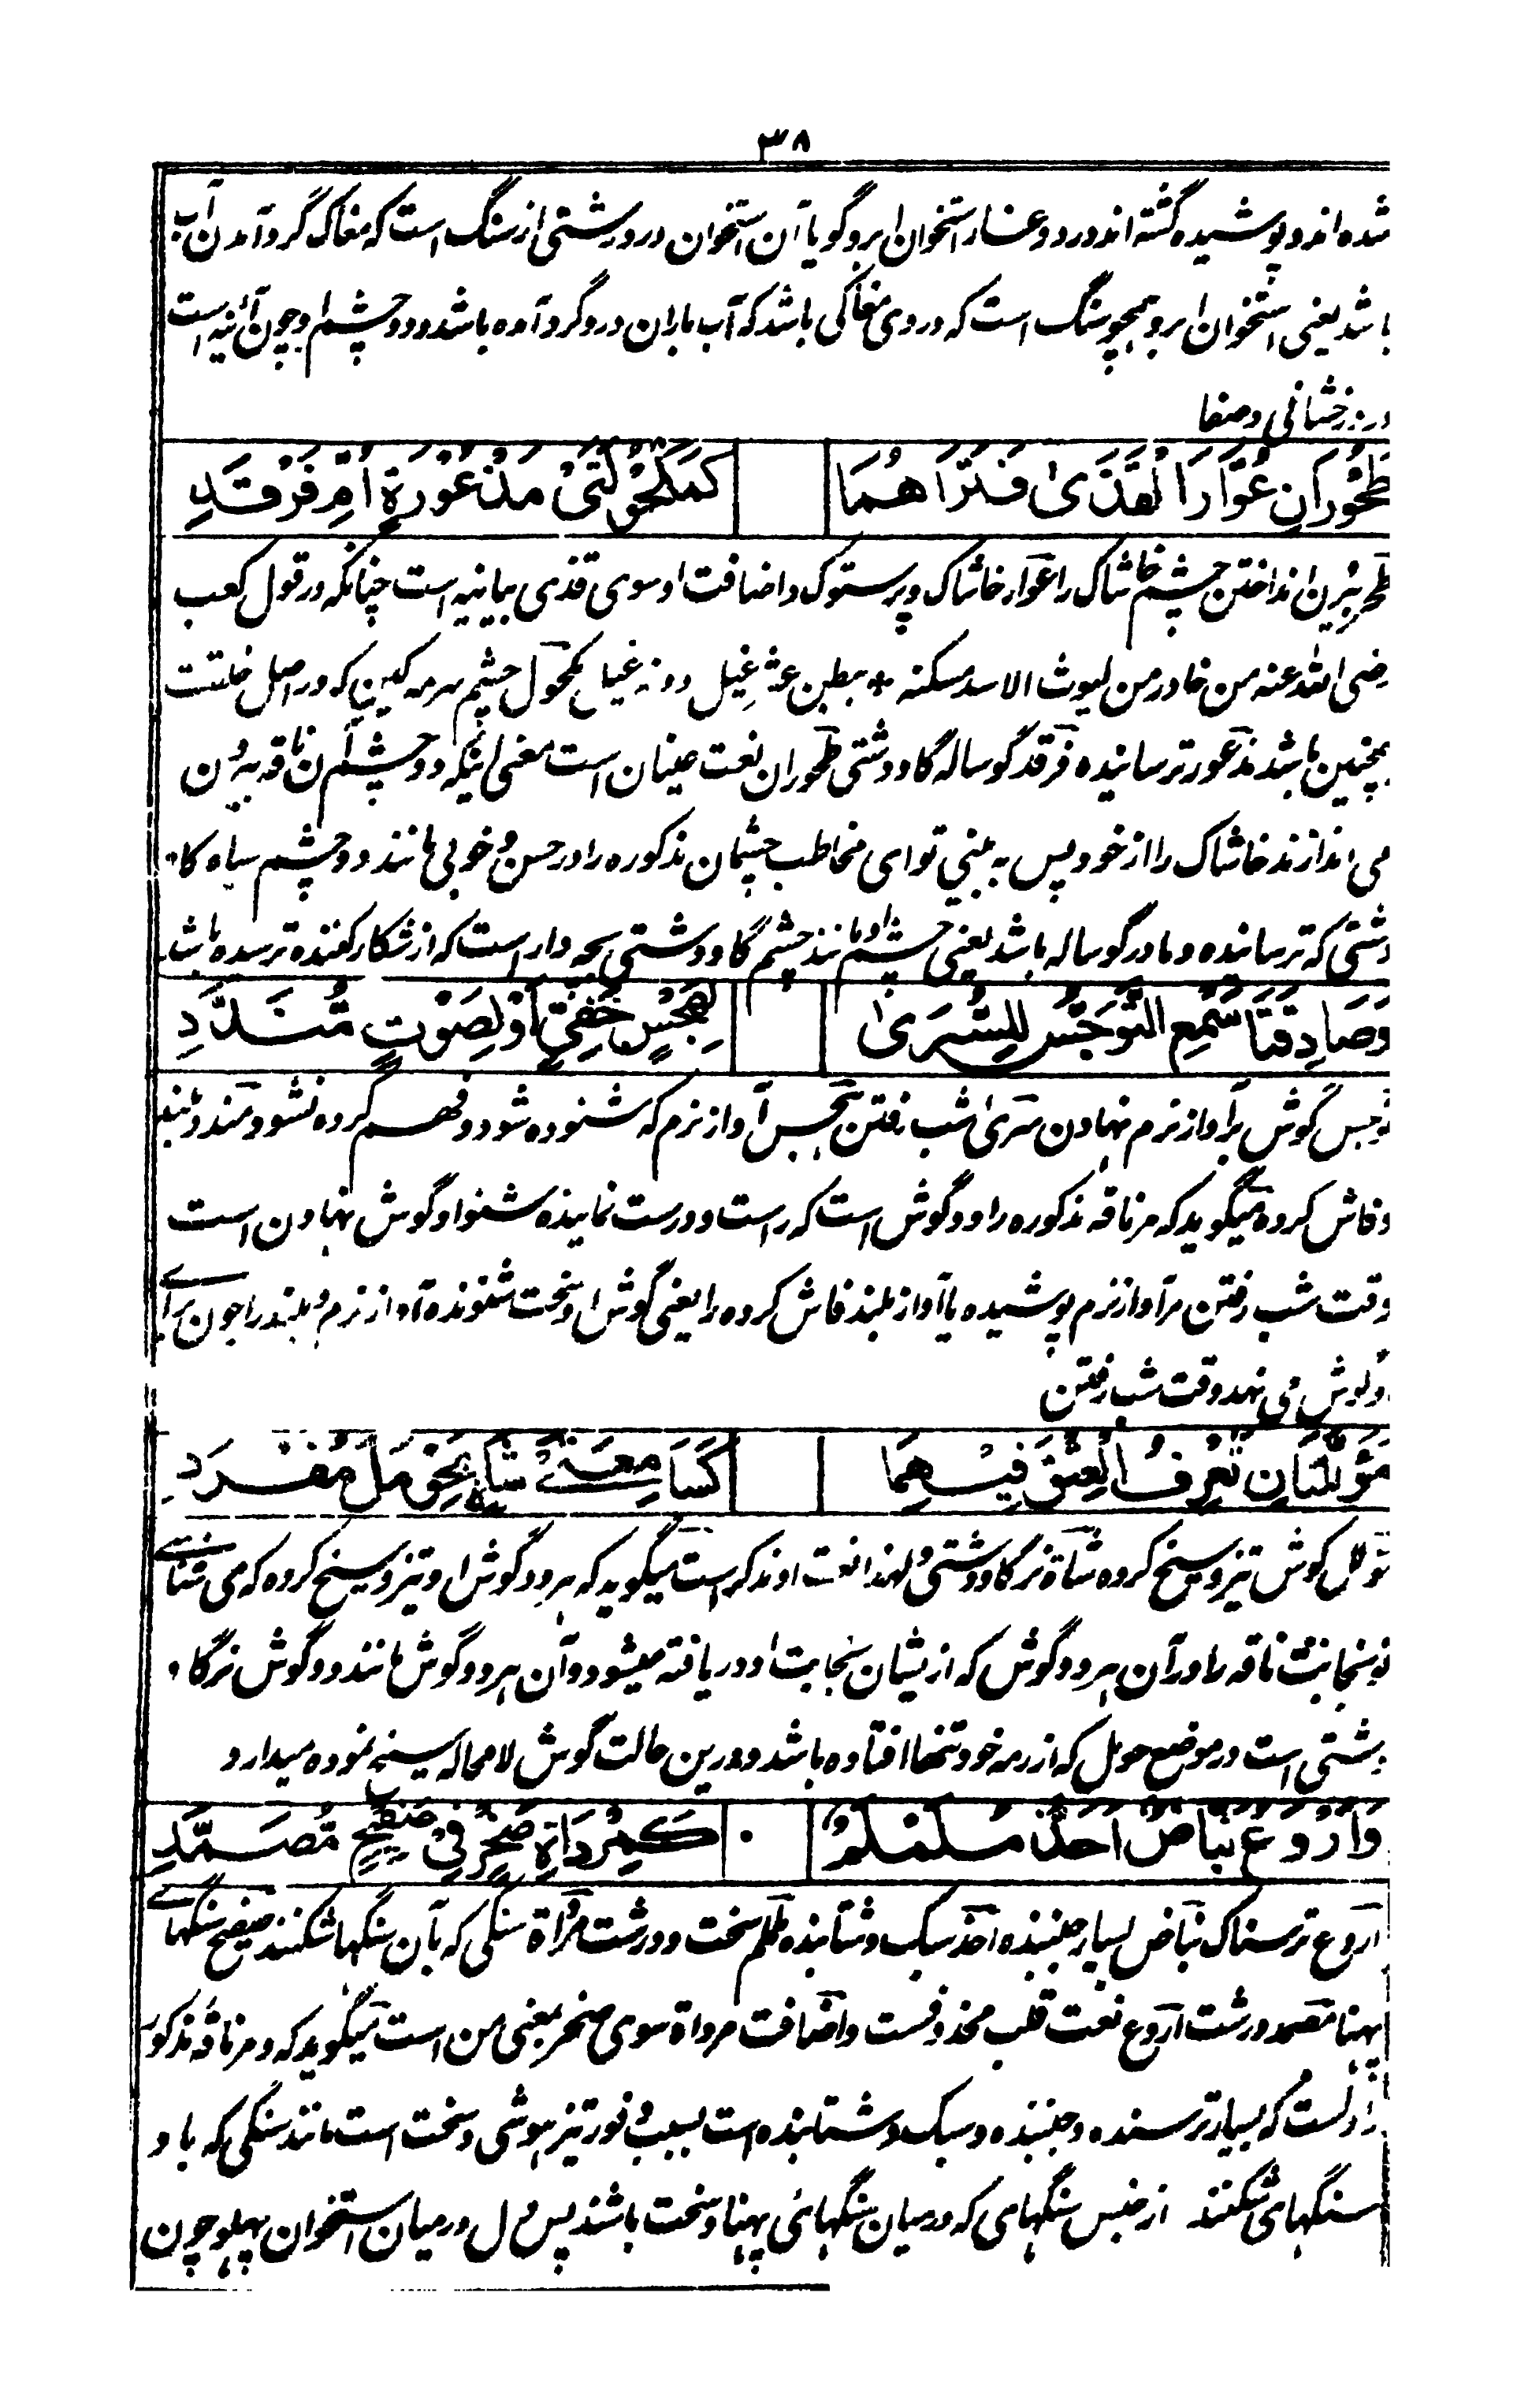 ۳۸
شده اند و پوشیده گشته اند در دو غار استخوان ابرو گویا آن استخوان در درشتی از سنگ است که مغاک گرد آمدن آب
باشد یعنی استخوان ابرو همچو سنگ است که در وی مغاکی باشد که آب باران درو گرد آمده باشد و دو چشم او چون آئینه است
در درخشانی و صفا
طَحُوْرَانِ عُوَّارَ الْقَذَىٰ فَتَرَاهُمَا كَمَكْحُوْلَتَىْ مَذْعُوْرَةٍ اُمِّ فَرْقَدِ
طحر بیرون انداختن چشم خاشاک را عوار خاشاک و پرستوک و اضافت او سوی قذی بیانیه است چنانکه در قول کعب
رضی الله عنه من خادر من لیوث الاسد مسکنه * ببطن عثر غیل دونه غیل مکحول چشم سرمه گین که در اصل خلقت
همچنین باشد مذعور ترسانیده فرقد گوساله گاو دشتی طحوران نعت عینان است معنی اینکه دو چشم آن ناقه بیرون
می اندازند خاشاک را از خود پس به بینی تو ای مخاطب چشمان مذکوره را در حسن و خوبی مانند دو چشم سیاه گاو
دشتی که ترسانیده و مادر گوساله باشد یعنی چشم او مانند چشم گاو دشتی بچه دار است که از شکار کننده ترسیده باشد
وَصَادِقَتَا سَمْعِ التَّوَجُّسِ لِلسُّرَىٰ لِهَجْسٍ خَفِيٍّ اَوْ لِصَوْتٍ مُّنَدَّدِ
توجس گوش بر آواز نرم نهادن سریٰ شب رفتن هجس آواز نرم که شنوده شود و فهم کرده نشود مندد بلند
و فاش کرده میگوید که مر ناقه مذکوره را دو گوش است که راست و درست نماینده شنوا و گوش نهادن است
وقت شب رفتن مر آواز نرم پوشیده یا آواز بلند فاش کرده را یعنی گوش او سخت شنونده آواز نرم و بلند را چون برای
او گوش می نهد وقت شب رفتن
مُؤَلَّلَتَانِ تَعْرِفُ الْعِتْقَ فِيْهِمَا كَسَامِعَتَىْ شَاةٍ بِحَوْمَلَ مُفْرَدِ
تؤلل گوش تیز و سیخ کرده شاة نر گاو دشتی و لهذا نعت او مذکر است میگوید که هر دو گوش او تیز و سیخ کرده که می شناسے
تو نجابت ناقه را در آن هر دو گوش که از یشان نجابت او دریافته میشود و آن هر دو گوش مانند دو گوش نر گاو
دشتی است در موضع حومل که از رمه خود تنها افتاده باشد و درین حالت گوش لامحاله سیخ نموده میدارد
وَاَرْوَعُ نَبَّاضٌ اَحَذُّ مُلَمْلَمٌ كَمِرْدَاةِ صَخْرٍ فِيْ صَفِيْحٍ مُّصَمَّدِ
اروع ترسناک نباض بسیار جنبنده احذ سبک و شتابنده ململم سخت و درشت مرداة سنگی که بآن سنگها شکنند صفیح سنگهاے
پهنا مصمد درشت اروع نعت قلب محذوفست و اضافت مرداة سوی صخر بمعنی من است میگوید که و مر ناقه مذکور
را دلست که بسیار ترسنده و جنبنده و سبک و شتابنده است بسبب وفور تیز هوشی و سخت است مانند سنگی که باو
سنگها می شکنند از جنس سنگهای که درمیان سنگهائی پهنا و سخت باشند پس دل درمیان استخوان پهلو چون